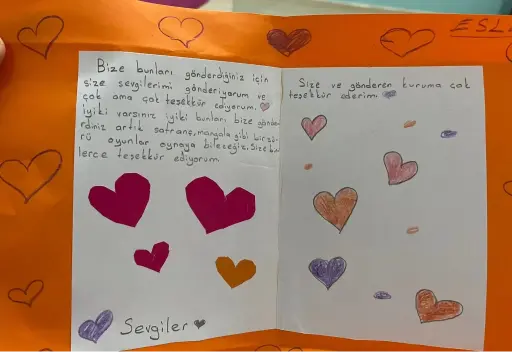 ESL
Bize bunları gönderdiğiniz için
size sevgilerimi gönderiyorum ve
çok ama çok teşekkür ediyorum.
iyiki varsınız iyiki bunları bize gönde
rdiniz artık satranç, mangala gibi bir sü-
rü oyunlar oynaya bileceğiz. Size bin
lerce teşekkür ediyorum
Sevgiler
Size ve gönderen kuruma çok
teşekkür ederim